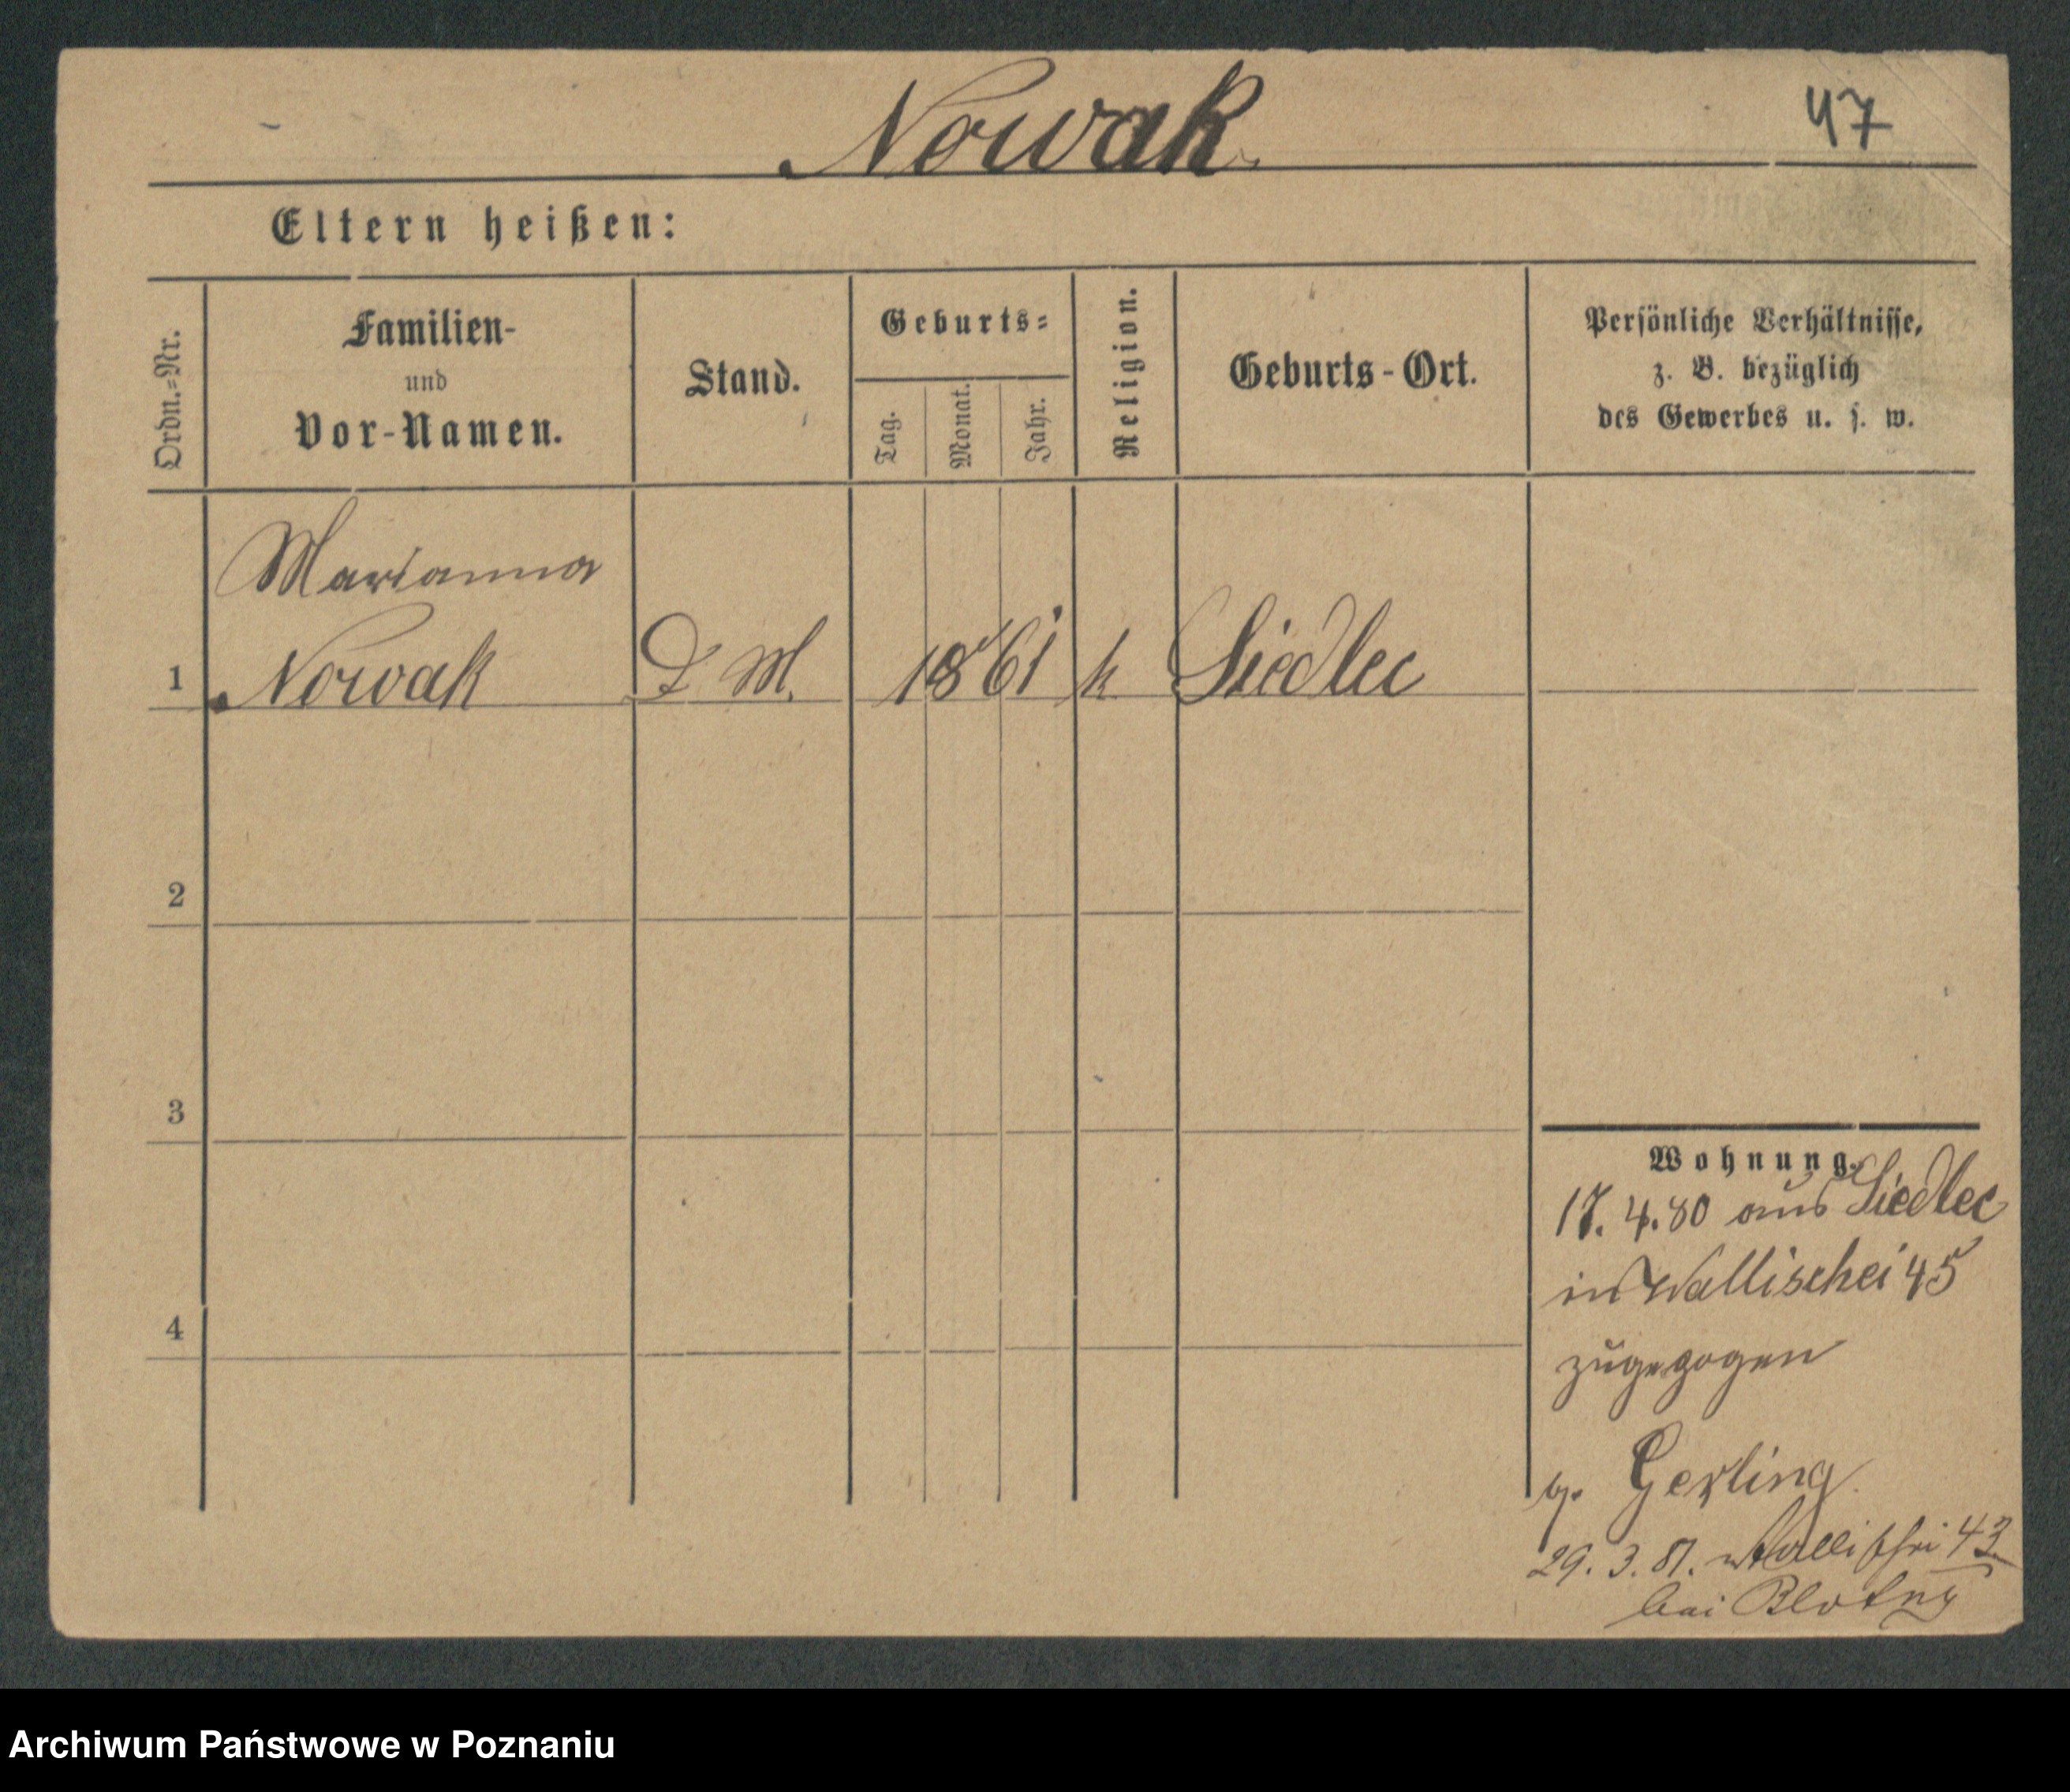 Nowak
47
Eltern heißen:
Ordn.=Nr.
Familien-
und
Vor-Namen.
Stand.
Geburts=
Tag.
Monat.
Jahr.
Religion.
Geburts-Ort.
Persönliche Verhältnisse,
z. B. bezüglich
des Gewerbes u. s. w.
Marianna
1 Nowak D M. 1861 k Siedlec
2
3
4
Wohnung.
17. 4. 80 aus Siedlec
in Wallischei 45
zugezogen
Gerling
29. 3. 81. Wallischei 43
bei Blotny
Archiwum Państwowe w Poznaniu